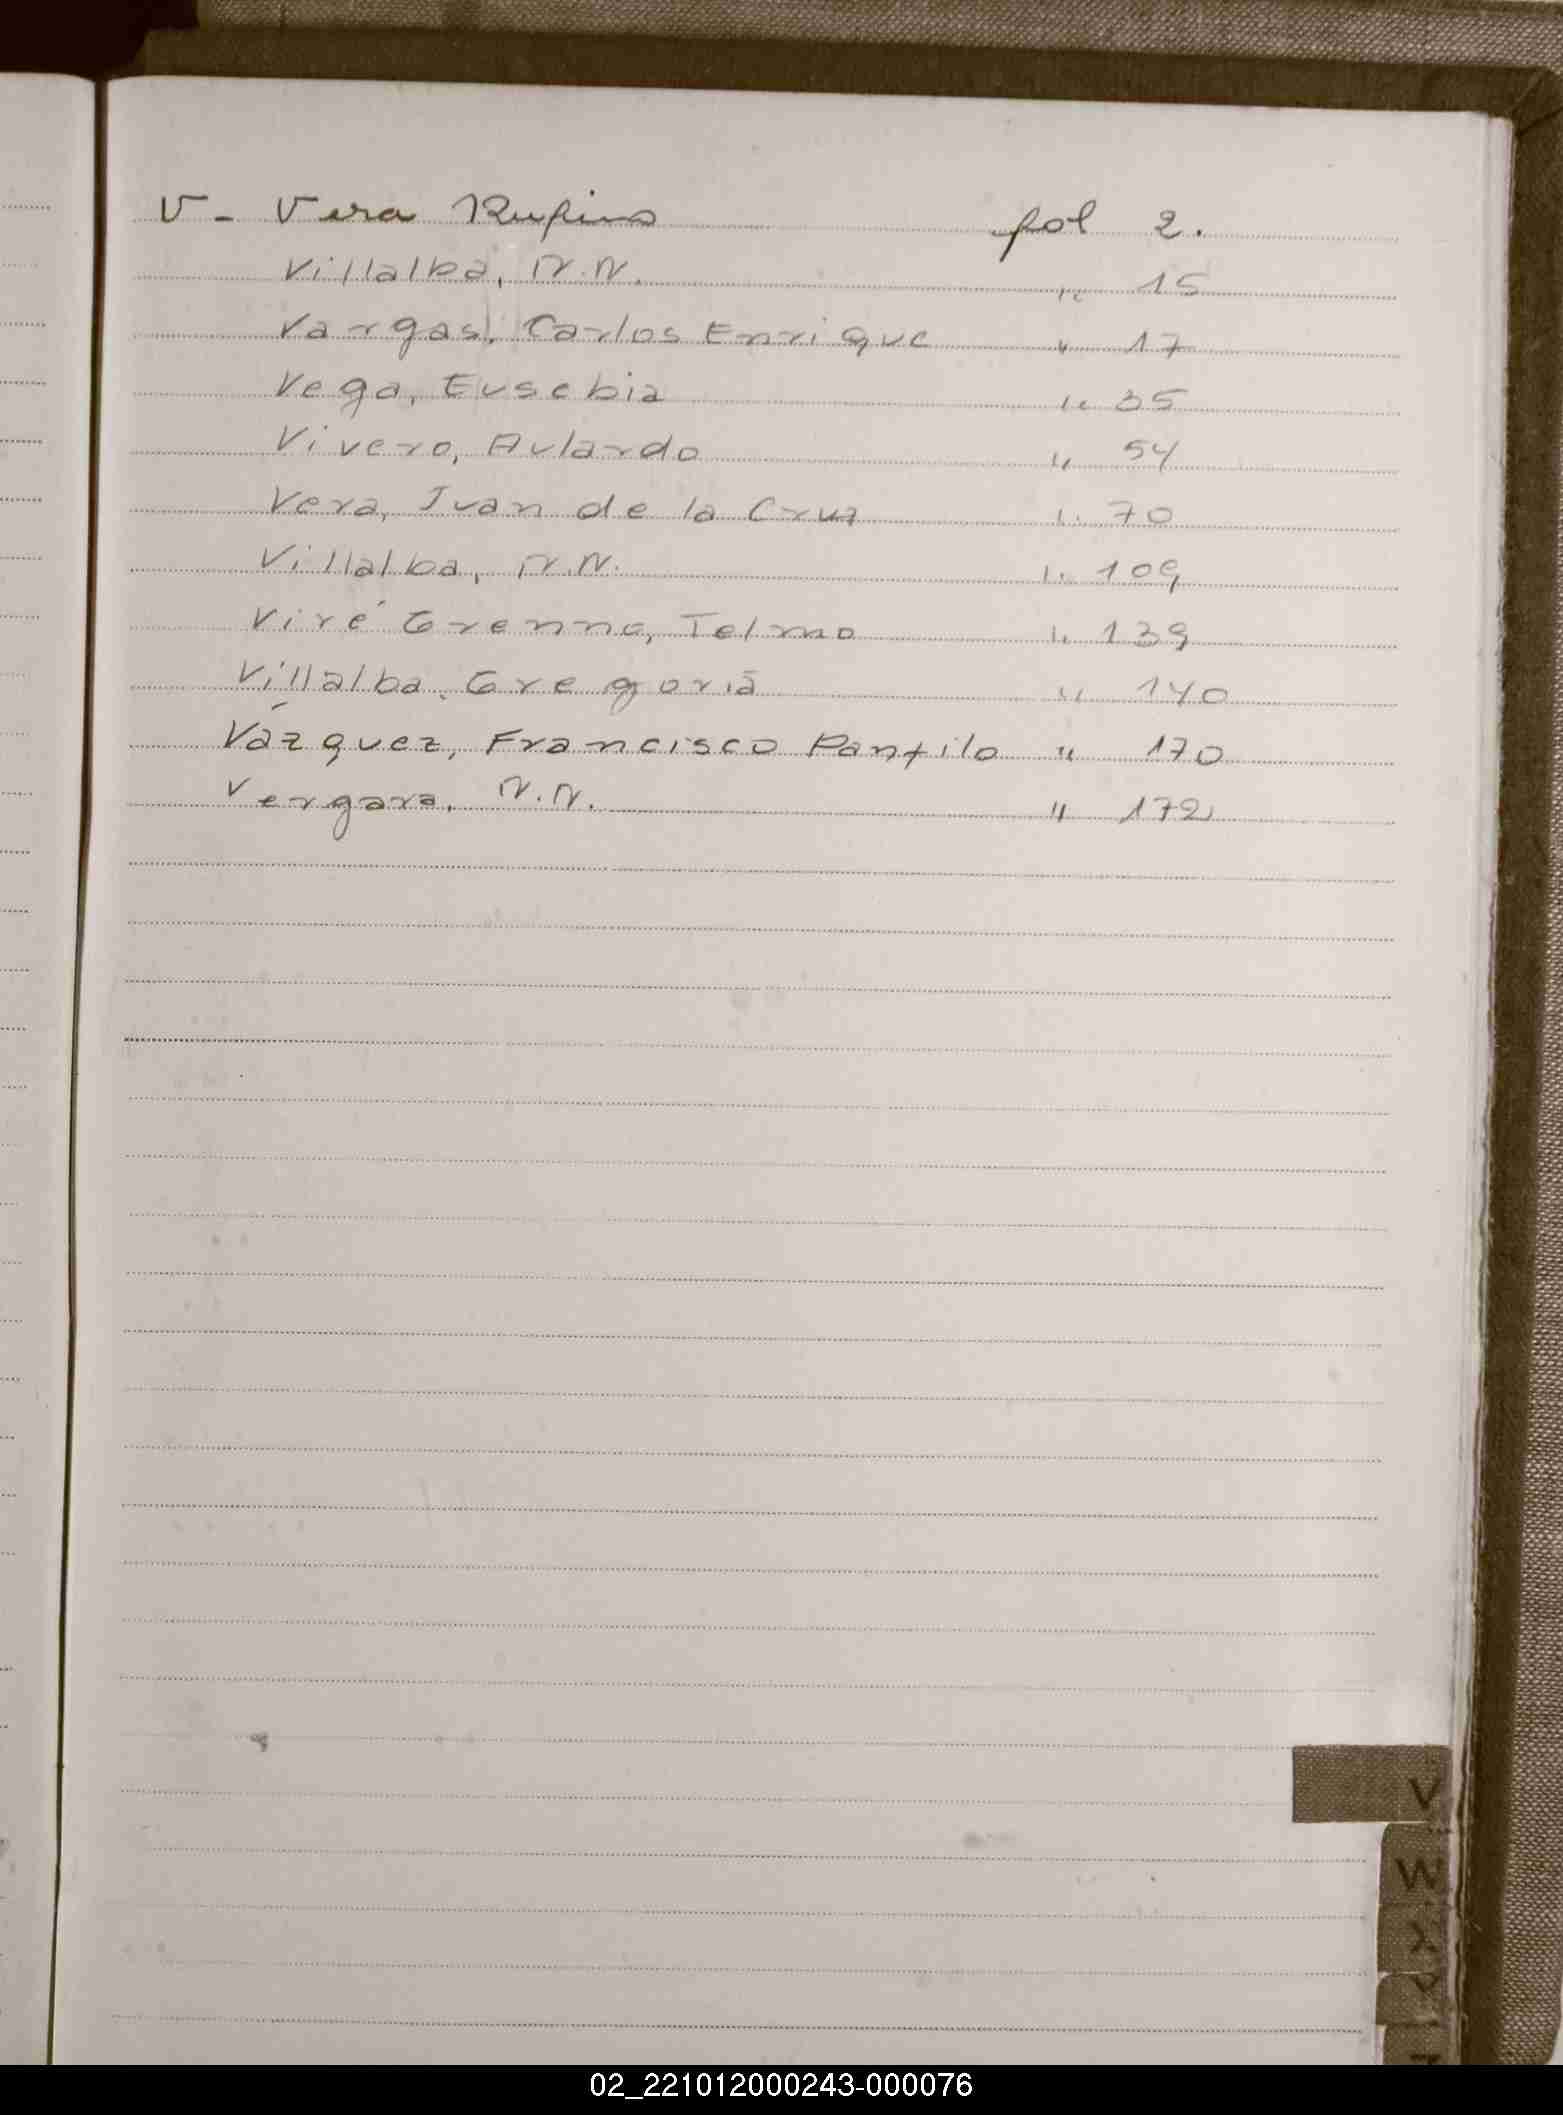 V- Vera Rufino fol 2.
Villalba, N.N. " 15
Vargas, Carlos Enrique " 17
Vega, Eusebia " 35
Vivero, Aulardo " 54
Vera, Juan de la Cruz " 70
Villalba, N.N. " 109
Viré Grenno, Telmo " 139
Villalba, Gregoria " 140
Vázquez, Francisco Panfilo " 170
Vergara, N.N. " 172
V
W
X
Y
02_221012000243-000076